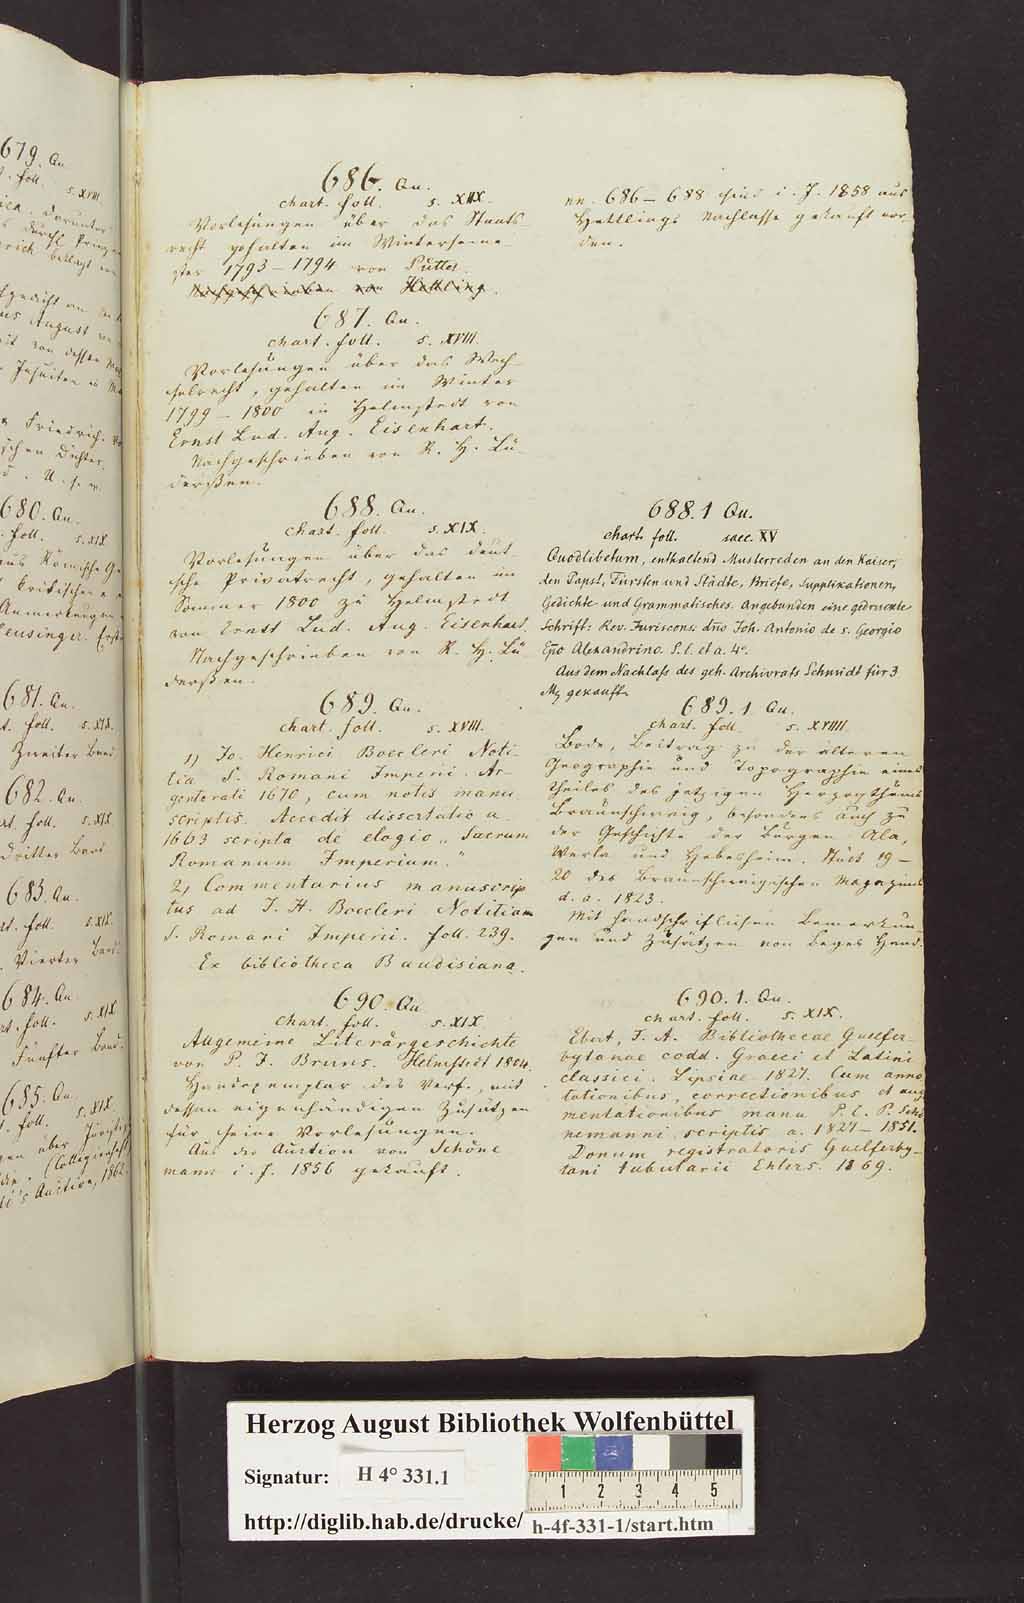 679. Qu.
t. foll. s. XVIII.
680. Qu.
. foll. s. XIX
681. Qu.
t. foll. s. XIX.
Zweiter Band.
682. Qu.
rt. foll. s. XIX
Dritter Band
683. Qu.
rt. foll. s. XIX.
Vierter Band.
684. Qu.
rt. foll. s. XIX
Fünfter Band.
685. Qu.
t. foll. s. XIX.
686. Qu.
chart. foll. s. XIX.
Vorlesungen über das Staats-
recht gehalten im Winterseme-
ster 1793–1794 von Pütter.
Nachgeschrieben von Hettling.
687. Qu.
chart. foll. s. XVIII.
Vorlesungen über das Wech-
selrecht, gehalten im Winter
1799–1800 in Helmstedt von
Ernst Lud. Aug. Eisenhart.
Nachgeschrieben von R. H. Lü-
derßen.
688. Qu.
chart. foll. s. XIX.
Vorlesungen über das deut-
sche Privatrecht, gehalten im
Sommer 1800 zu Helmstedt
von Ernst Lud. Aug. Eisenhart.
Nachgeschrieben von R. H. Lü-
derßen.
689. Qu.
chart. foll. s. XVIII.
1) Jo. Henrici Boecleri Noti-
tia S. Romani Imperii. Ar-
gentorati 1670, cum notis manu
scriptis. Accedit dissertatio a.
1663 scripta de elogio „Sacrum
Romanum Imperium."
2) Commentarius manuscrip
tus ad J. H. Boecleri Notitiam
S. Romani Imperii. foll. 239.
Ex bibliotheca Baudisiana.
690. Qu
chart. foll. s. XIX
Allgemeine Literärgeschichte
von P. J. Bruns. Helmstedt 1804.
Handexemplar des Verf., mit
dessen eigenhändigen Zusätzen
für seine Vorlesungen.
Aus der Auction von Schöne
mann i. J. 1856 gekauft.
nn. 686–688 sind i. J. 1858 aus
Hettlings Nachlasse gekauft wor
den.
688.1 Qu.
chart. foll. saec. XV
Quodlibetum, enthaltend Musterreden an den Kaiser,
den Papst, Fürsten und Städte, Briefe, Supplikationen,
Gedichte und Grammatisches. Angebunden eine gedruckte
Schrift: Rev. Juriscons. dño Joh. Antonio de S. Georgio
Epo Alexandrino. S. l. et a. 4°.
Aus dem Nachlass des geh. Archivrats Schmidt für 3
M. gekauft.
689. 1 Qu.
chart. foll. s. XVIIII.
Bode, Beitrag zu der älteren
Geographie und Topographie eines
Theiles des jetzigen Herzogthums
Braunschweig, besonders auch zu
der Geschichte der Burgen Ala,
Werla und Hebesheim. Stück 19–
20 des Braunschweigischen Magazins
d. a. 1823.
Mit handschriftlichen Bemerkun-
gen und Zusätzen von Beges Hand.
690. 1. Qu.
chart. foll. s. XIX.
Ebert, F. A. Bibliothecae Guelfer-
bytanae codd. Graeci et Latini
classici. Lipsiae 1827. Cum anno
tationibus, correctionibus et aug
mentationibus manu P. C. P. Schö
nemanni scriptis a. 1827–1851.
Donum registratoris Guelferby-
tani tabularii Ehlers. 1869.
Herzog August Bibliothek Wolfenbüttel
Signatur: H 4° 331.1
1 2 3 4 5
http://diglib.hab.de/drucke/ h-4f-331-1/start.htm